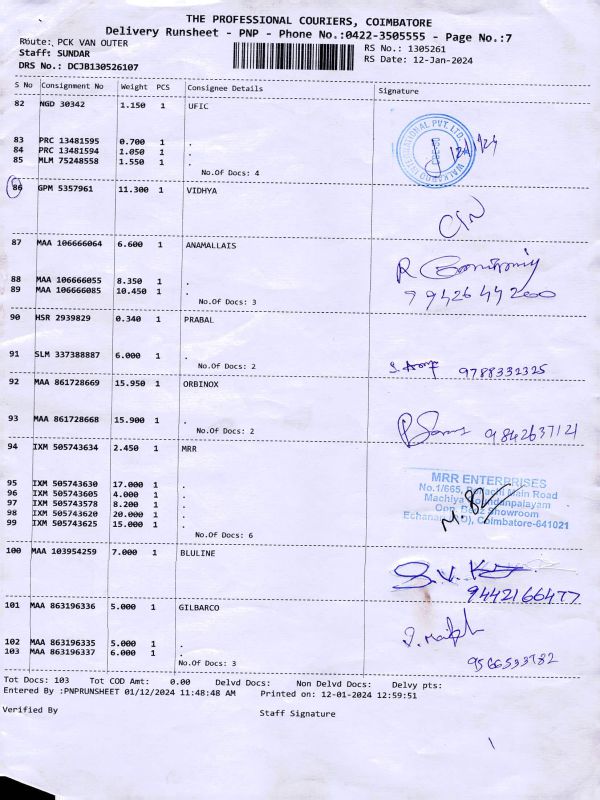 THE PROFESSIONAL COURIERS, COIMBATORE
Delivery Runsheet - PNP - Phone No.:0422-3505555 - Page No.:7
Route: PCK VAN OUTER
Staff: SUNDAR
DRS No.: DCJB130526107
RS No.: 1305261
RS Date: 12-Jan-2024
S No Consignment No Weight PCS Consignee Details Signature
82 NGD 30342 1.150 1 UFIC
83 PRC 13481595 0.700 1 .
84 PRC 13481594 1.050 1 .
85 MLM 75248558 1.550 1 .
No.Of Docs: 4
86 GPM 5357961 11.300 1 VIDHYA
87 MAA 106666064 6.600 1 ANAMALLAIS
88 MAA 106666055 8.350 1 .
89 MAA 106666085 10.450 1 .
No.Of Docs: 3
R
7942644200
90 HSR 2939829 0.340 1 PRABAL
91 SLM 337388887 6.000 1 .
No.Of Docs: 2
9788332325
92 MAA 861728669 15.950 1 ORBINOX
93 MAA 861728668 15.900 1 .
No.Of Docs: 2
9842637121
94 IXM 505743634 2.450 1 MRR
95 IXM 505743630 17.000 1 .
96 IXM 505743605 4.000 1 .
97 IXM 505743578 8.200 1 .
98 IXM 505743620 20.000 1 .
99 IXM 505743625 15.000 1 .
No.Of Docs: 6
MRR ENTERPRISES
No.1/665, Main Road
Machiya
Opp. Showroom
Coimbatore-641021
100 MAA 103954259 7.000 1 BLULINE
9442166477
101 MAA 863196336 5.000 1 GILBARCO
102 MAA 863196335 5.000 1 .
103 MAA 863196337 6.000 1 .
No.Of Docs: 3
9566533782
Tot Docs: 103 Tot COD Amt: 0.00 Delvd Docs: Non Delvd Docs: Delvy pts:
Entered By :PNPRUNSHEET 01/12/2024 11:48:48 AM Printed on: 12-01-2024 12:59:51
Verified By Staff Signature